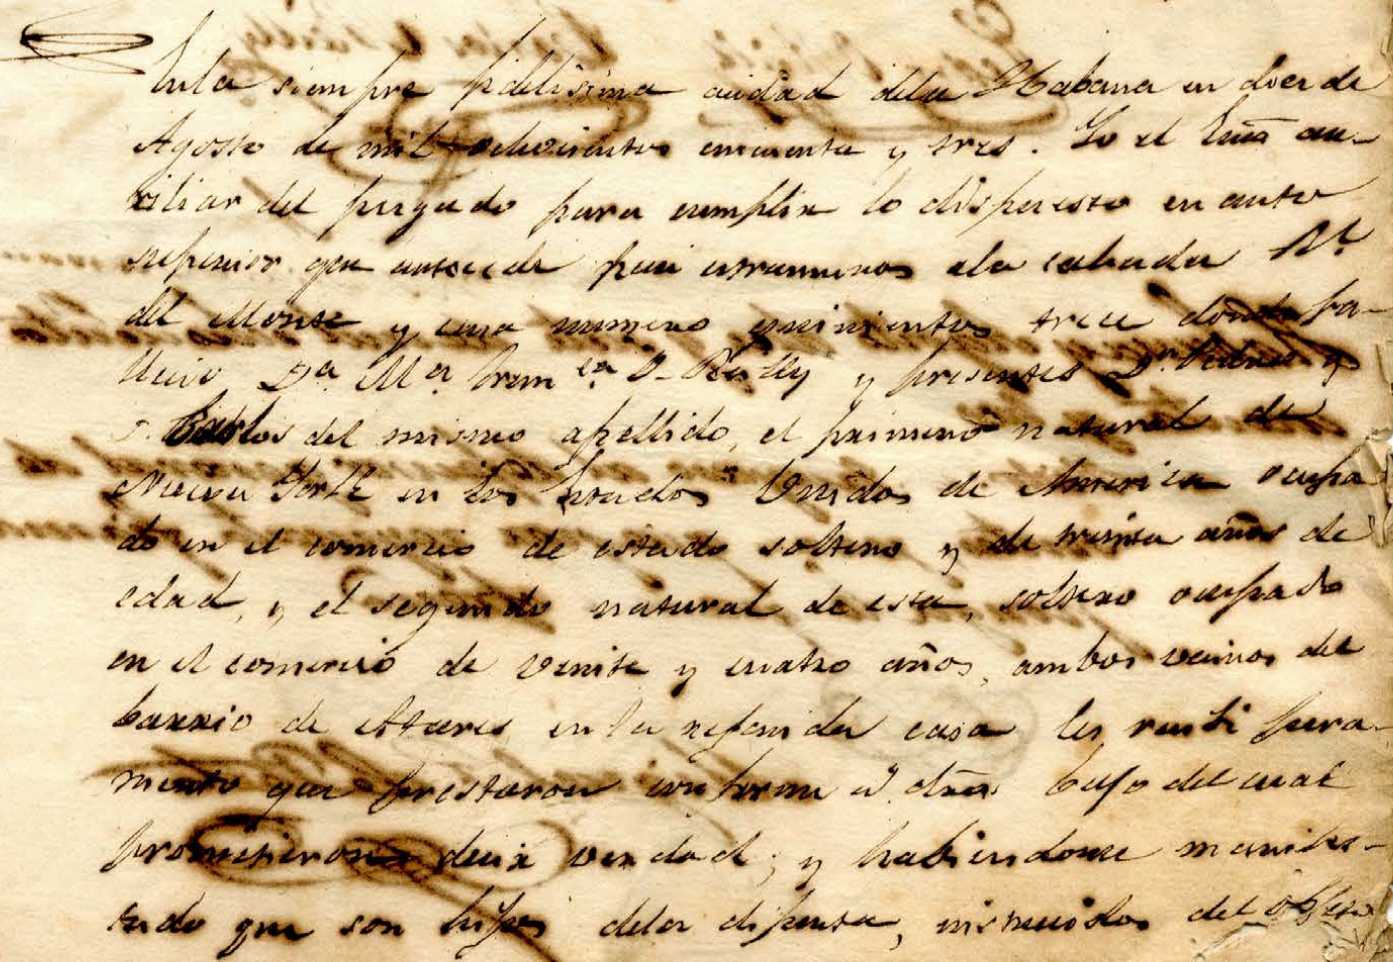 Enla siempre fidelisima ciudad dela Habana en doce de
Agosto de mil ochocientos cincuenta y tres. Yo el Esno au-
xiliar del juzgado para cumplir lo dispuesto en auto
superior que antecede pasi a la calzada Rl
del Monte y casa numero quinientos trece donde fa-
llecio Da Ma Fran ca O-Reilly y presentes Dn Pedro y
D. Carlos del mismo apellido, el primero natural de
Nueva York en los Estados Unidos de America ocupa
do en el comercio de estado soltero y de treinta años de
edad, y el segundo natural de esta, soltero ocupado
en el comercio de veinte y cuatro años, ambos vecinos del
barrio de Atares en la referida casa les recibi jura-
mento que prestaron conforme á dro bajo del cual
prometieron decir verdad; y habiendose manifes-
tado que son hijos dela difunta, instruidos del objeto